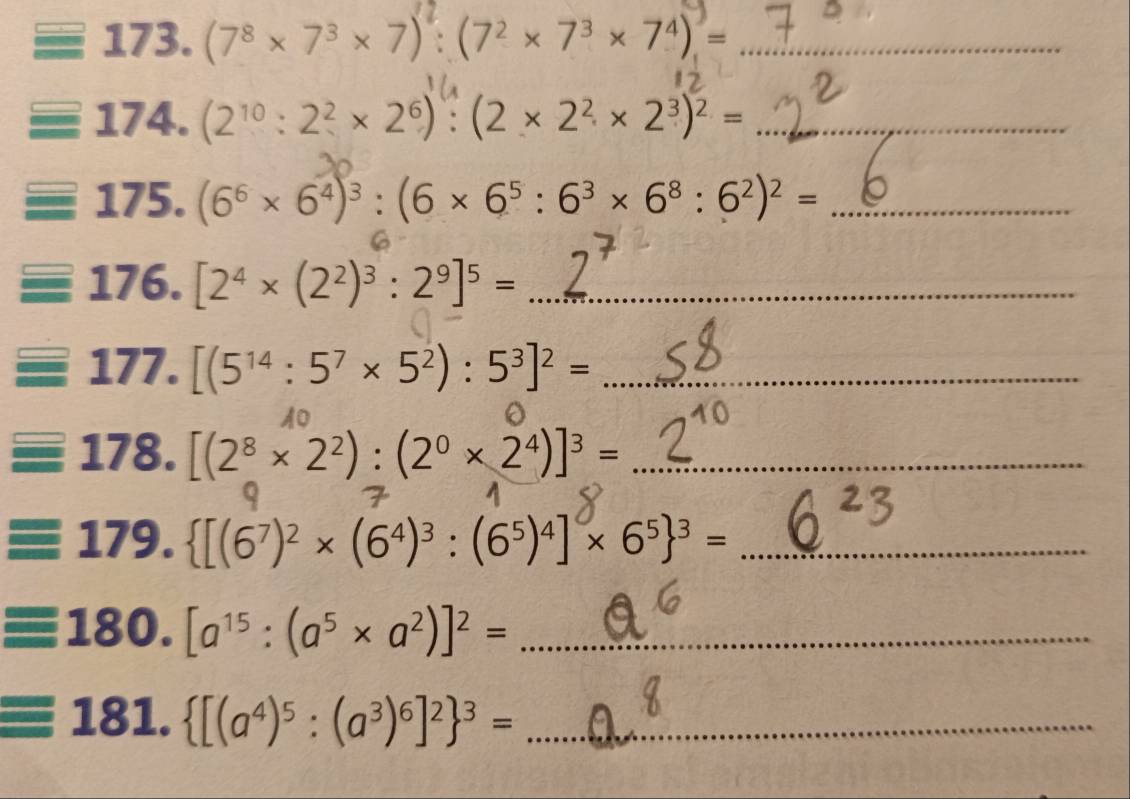 173. (7⁸ × 7³ × 7)¹² : (7² × 7³ × 7⁴)⁹ = 7³
174. (2¹⁰ : 2² × 2⁶)¹⁴ : (2 × 2² × 2³)² = 2²
12
30
175. (6⁶ × 6⁴)³ : (6 × 6⁵ : 6³ × 6⁸ : 6²)² = 6
6
176. [2⁴ × (2²)³ : 2⁹]⁵ = 2⁷
9
177. [(5¹⁴ : 5⁷ × 5²) : 5³]² = 58
10 0
178. [(2⁸ × 2²) : (2⁰ × 2⁴)]³ = 2¹⁰
9 7 1 8
179. {[(6⁷)² × (6⁴)³ : (6⁵)⁴] × 6⁵}³ = 6²³
180. [a¹⁵ : (a⁵ × a²)]² = a⁶
181. {[(a⁴)⁵ : (a³)⁶]²}³ = a⁸